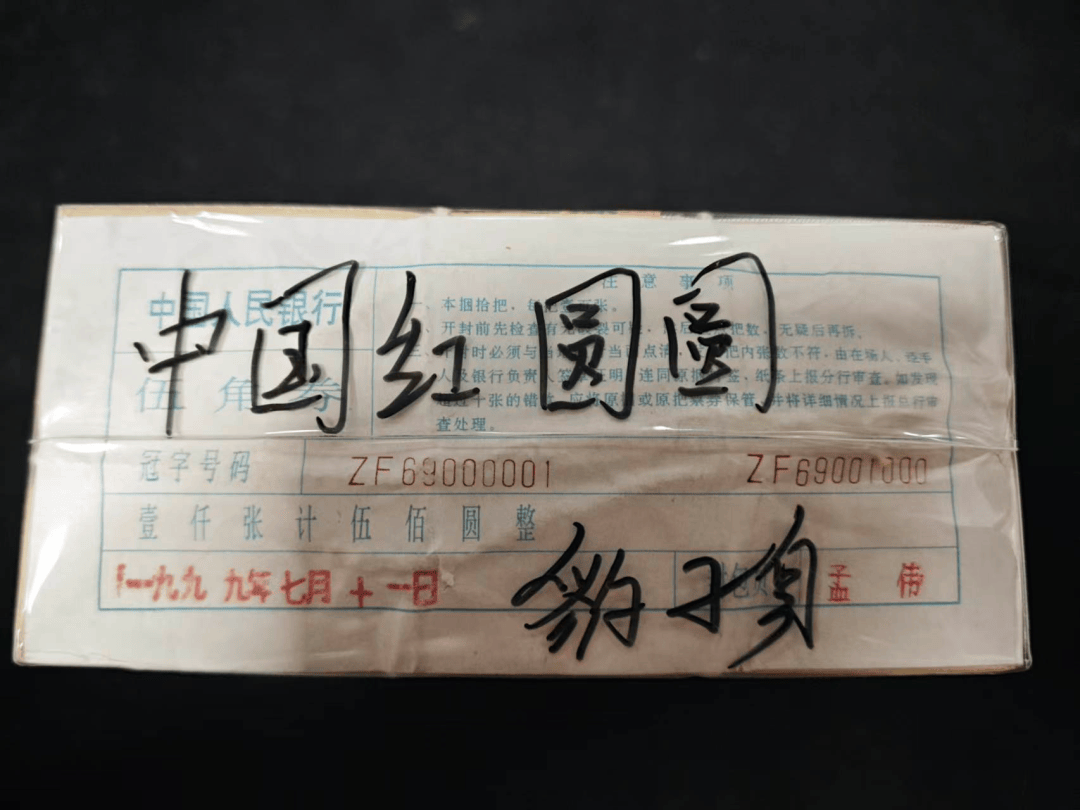 中国红圆圆
中国人民银行
伍角券
注意事项
一、本捆拾把，每把壹百张。
二、开封前先检查有无破裂可疑，然后 把数，无疑后再拆。
三、开封时必须与当 当面点清，如 把内张数不符，由在场人、经手
人及银行负责人签章证明，连同原捆 签，纸条上报分行审查。如发现
超过十张的错款，应将原捆或原把票券保管，并将详细情况上报总行审
查处理。
冠字号码 ZF69000001 ZF69001000
壹仟张计伍佰圆整
一九九九年七月十一日 孟伟